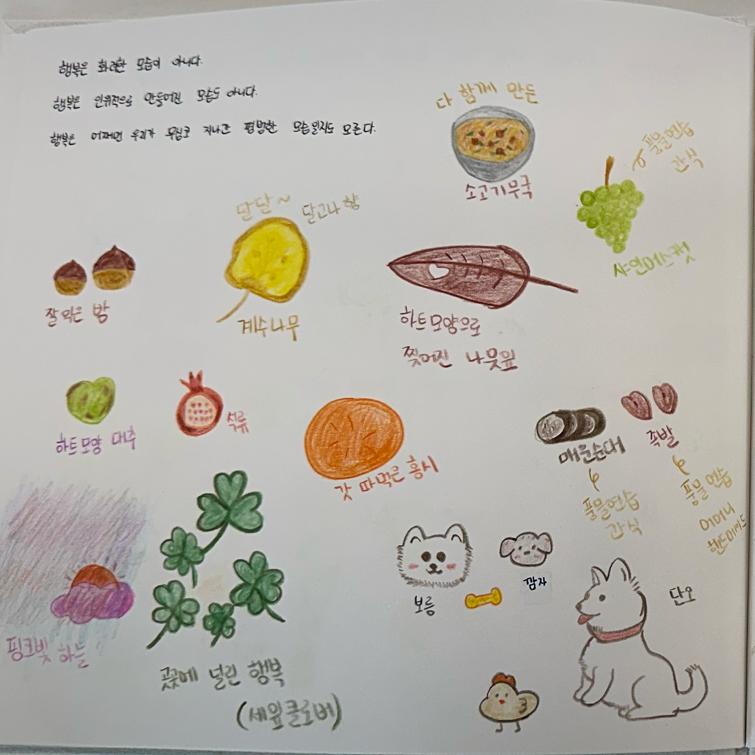 행복은 화려한 모습이 아니다.
행복은 인위적으로 만들어진 모습도 아니다.
행복은 어쩌면 우리가 무심코 지나간 평범한 모습일지도 모른다.
다 함께 만든
소고기무국
풍물연습
간식
샤인머스켓
달달~
달고나 향
계수나무
잘 익은 밤
하트모양으로
찢어진 나뭇잎
하트모양 대추
석류
갓 따먹은 홍시
매운순대
풍물연습
간식
족발
풍물연습
어머니
핸드메이드
핑크빛 하늘
곳곳에 널린 행복
(세잎클로버)
보름
깜자
단오